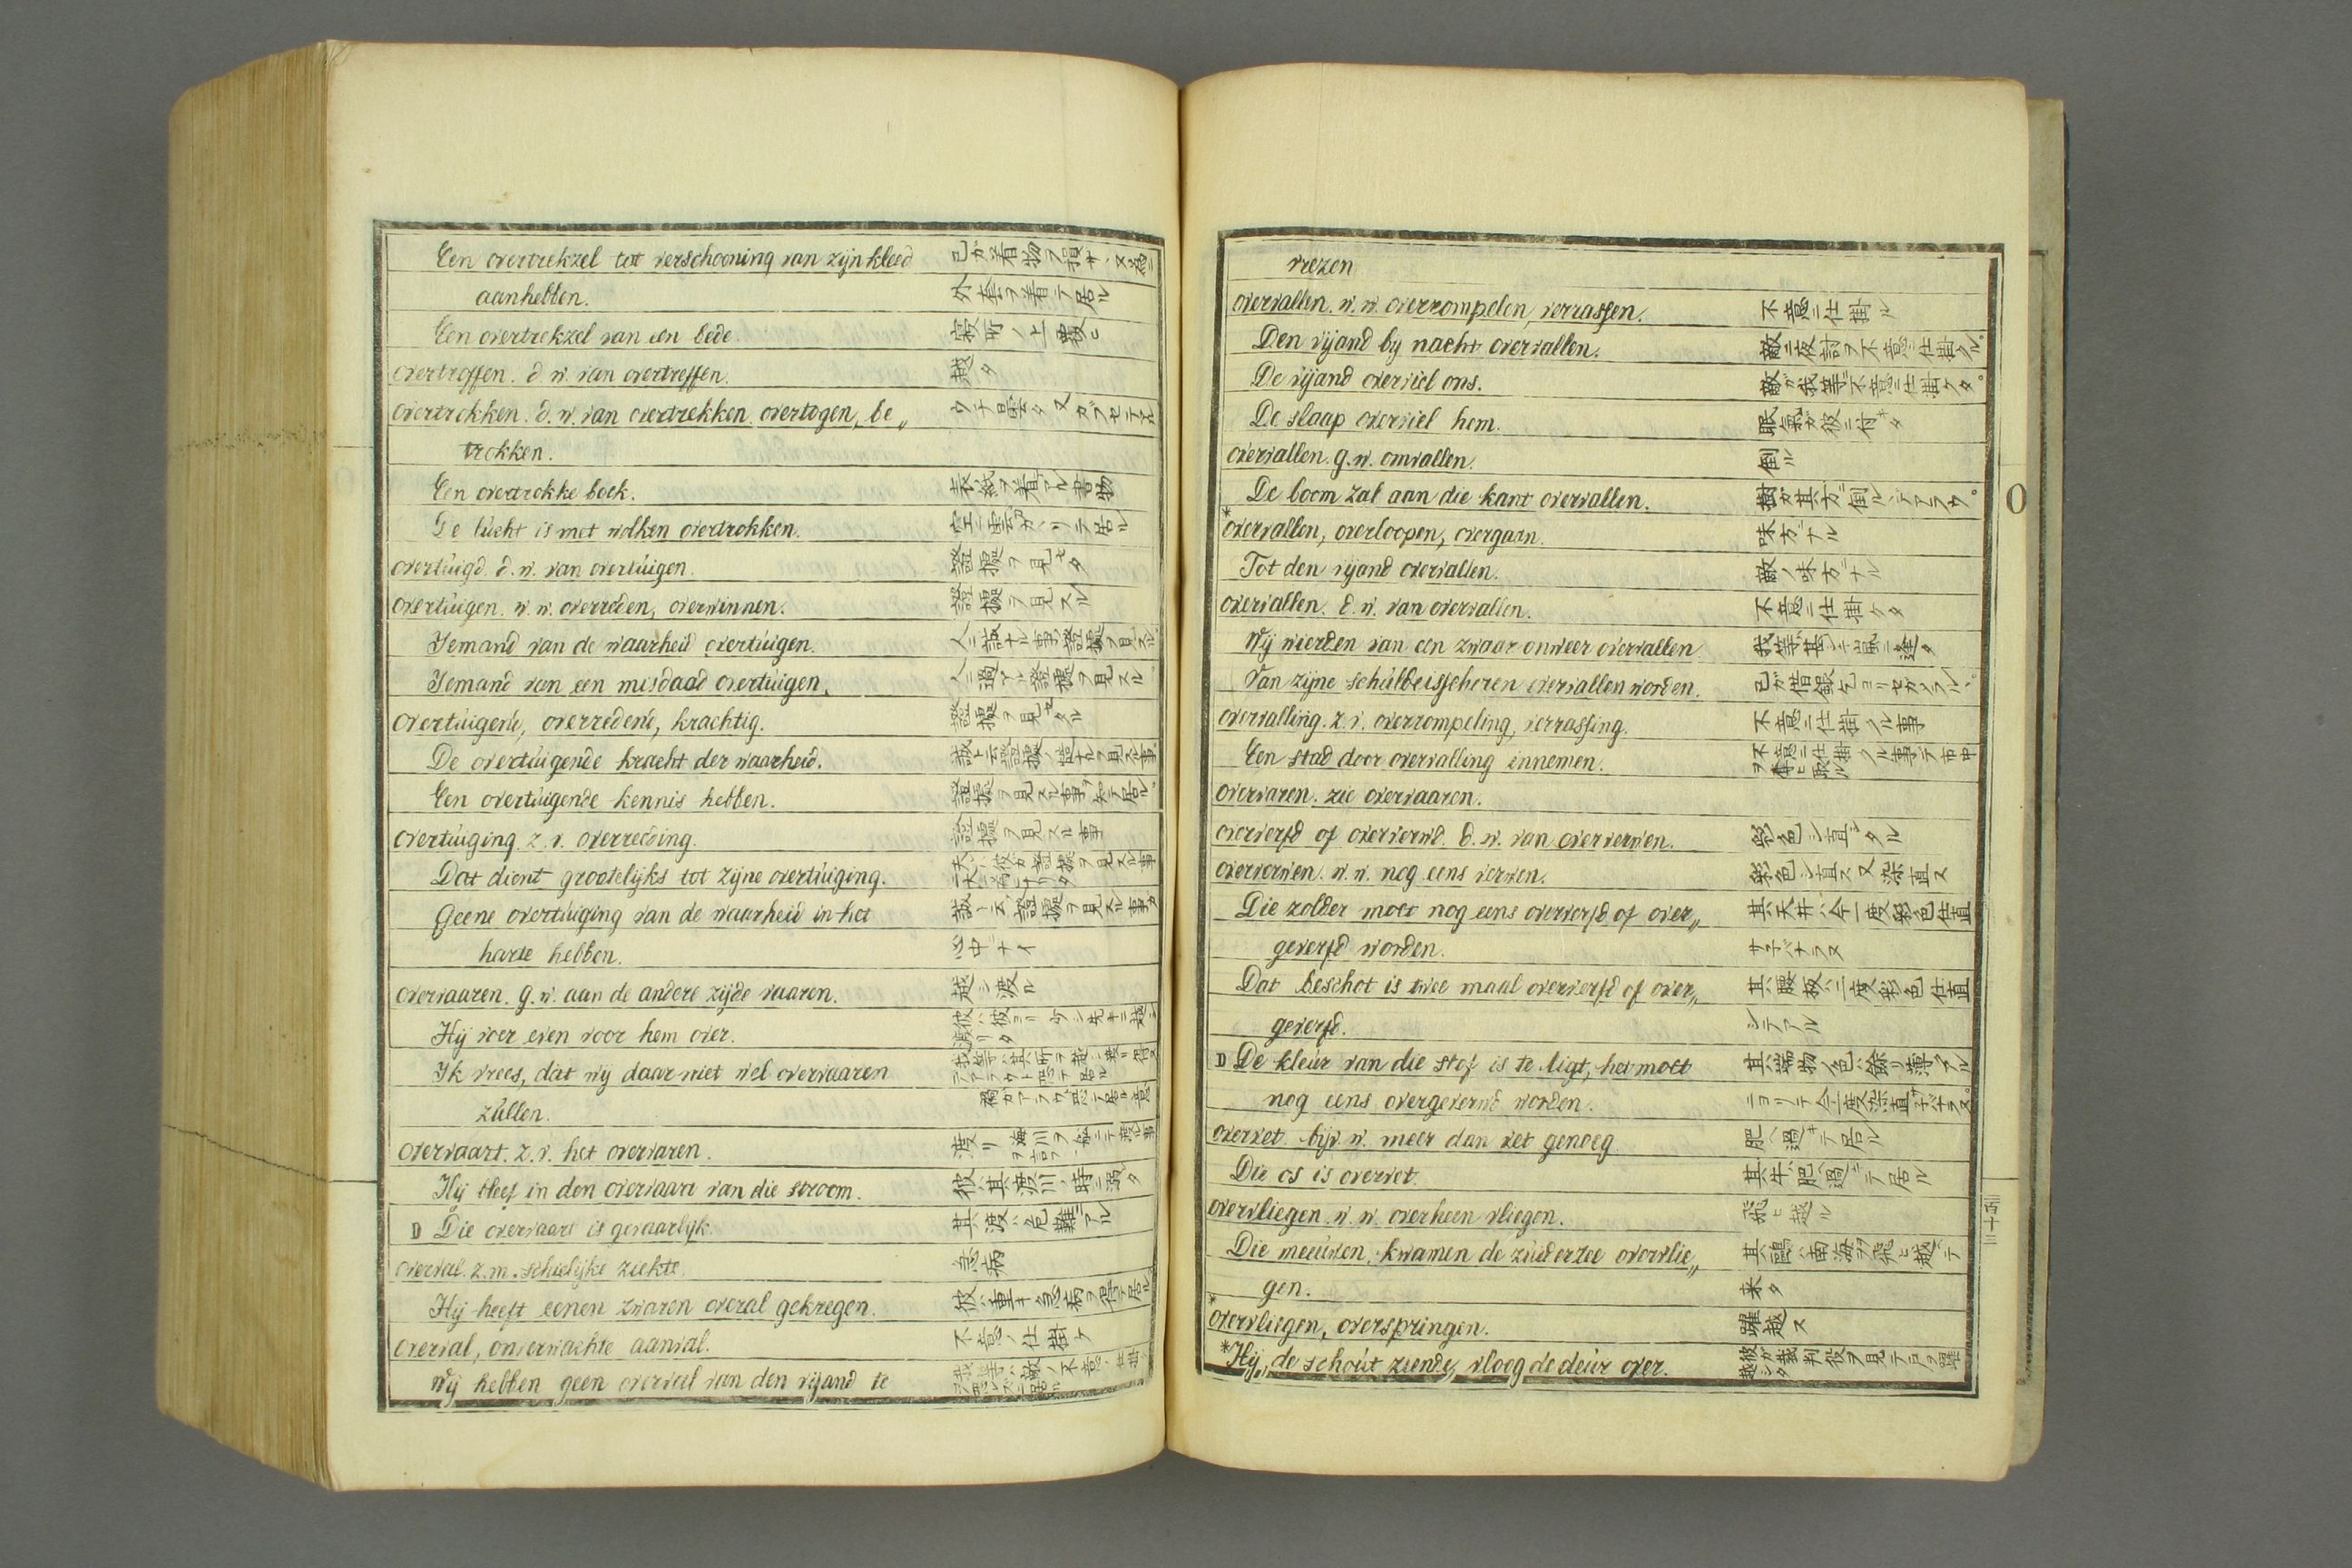 Een overtrekzel tot verschooning van zijn kleed 己ガ着物ヲ損サヌ為ニ
aanhebben. 外套ヲ着テ居ル
Een overtrekzel van een bede 寝所ノ上覆ヒ
overtroffen. d. w. van overtreffen. 越タ
overtrokken. d. w. van overtrekken. overtogen, be„
trokken.
Een overtrokke boek. 表紙ヲ着アル書物
De lucht is met wolken overtrokken. 空ニ雲ガカヽリテ居ル
overtúigd. d. w. van overtúigen. 證據ヲ見セタ
overtúigen. w. w. overreden, overwinnen. 證據ヲ見スル
Iemand van de waarheid overtúigen. 人ニ誠ナル事ノ證據ヲ見スル
Iemand van een misdaad overtuigen. 人ニ過アル證據ヲ見スル
overtúigend, overredend, krachtig. 證據ヲ見セタル
De overtúigende kracht der waarheid.
Een overtúigende kennis hebben. 證據ヲ見スル事ヲ知テ居ル
overtúiging. z. v. overreeding. 證據ヲ見スル事
Dat dient grootelijks tot zijne overtúiging.
Geene overtúiging van de waarheid in het
harte hebben. 心中ニナイ
overvaaren. g. w. aan de andere zijde vaaren. 越シ渡ル
Hij voer even voor hem over.
Ik vrees, dat wij daar niet wel overvaaren
zúllen.
overvaart. z. v. het overvaren.
Hij bleef in den overvaart van die stroom. 彼ハ其渡川ノ時ニ弱タ
D Die overvaart is gevaarlijk. 其渡ハ危難デアル
overval. z. m. schielijke ziekte. 急病
Hij heeft eenen zwaren overval gekregen. 彼ハ重キ急病ヲ得テ居ル
overval, onverwachte aanval. 不意ノ仕掛ケ
Wij hebben geen overval van den vijand te
vrezen
overvallen. w. w. overrompelen, verrassen. 不意ニ仕掛ル
Den vijand by nacht overvallen. 敵ニ夜討ヲ不意ニ仕掛クル
De vijand overviel ons. 敵ガ我等ニ不意ニ仕掛ケタ
De slaap overviel hem. 眠氣ガ彼ニ付キタ
overvallen. g. w. omvallen. 倒ル
De boom zal aan die kant overvallen. 樹ガ其方ニ倒ルヽデアラウ
* overvallen, overloopen, overgaan. 味方ニナル
Tot den vijand overvallen. 敵ノ味方ニナル
overvallen. d. w. van overvallen. 不意ニ仕掛ケタ
Wij wierden van een zwaar onweer overvallen
Van zijne schúldeisscheren overvallen worden.
overvalling. z. v. overrompeling, verrassing. 不意ニ仕掛クル事
Een stad door overvalling innemen. 不意ニ仕掛クル事デ市中ヲ奪ヒ取ル
overvaren. zie overvaaren.
oververfd of oververwd. d. w. van oververwen. 彩色シ直シタル
oververwen. w. w. nog eens verwen. 彩色シ直ス又染直ス
Die zolder moet nog eens oververfd of over„ 其天井ハ今一度彩色仕直
geverfd worden. サネバナラヌ
Dat beschot is twee maal oververfd of over„ 其腰板ハ二度彩色仕直
geverfd. シテアル
D De kleúr van die stof is te ligt, het moet 其端物ノ色ハ餘リ薄クアル
nog eens overgeverwd worden. ニヨリテ今一度染直サネバナラヌ
overvet. bijv. w. meer dan vet genoeg. 肥ヘ過キテ居ル
Die os is overvet. 其牛ハ肥ヘ過キテ居ル
overvliegen. w. w. overheen vliegen. 飛ヒ越ル
Die meeúwen, kwamen de zúiderzee overvlie„ 其鷗ハ南海ヲ飛ヒ越ヘテ
gen. 来タ
* overvliegen, overspringen. 躍越ス
* Hij, de schoút ziende, vloog de deúr over.
O
二百十三